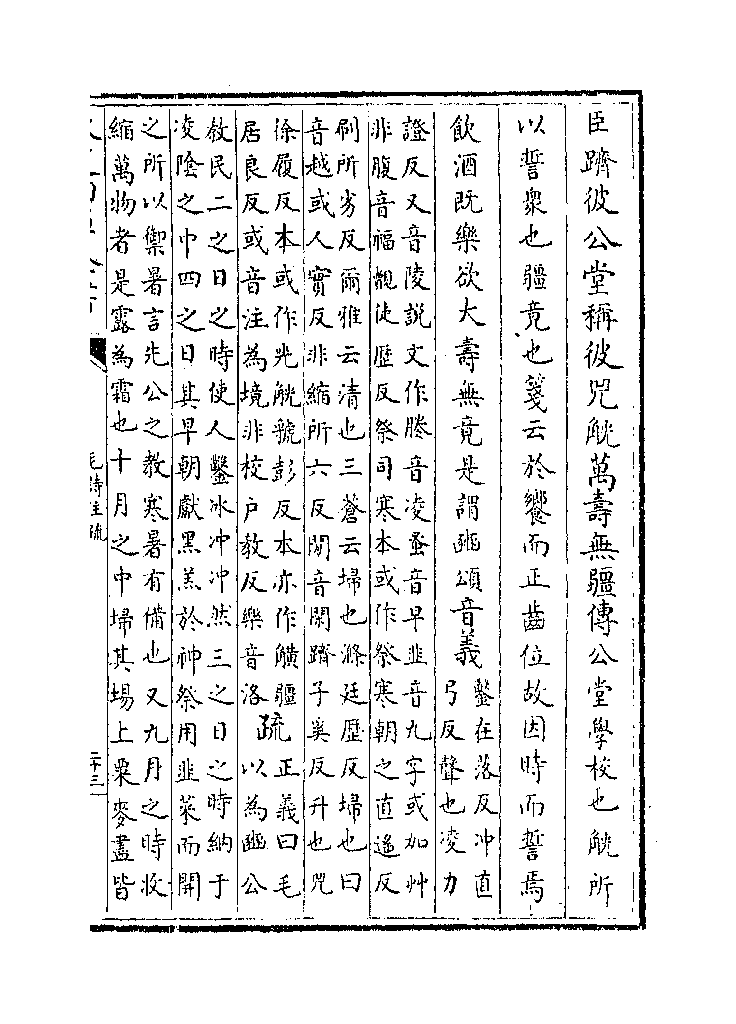 臣躋彼公堂稱彼兕觥萬壽無疆傳公堂學校也觥所
以誓衆也疆竟也箋云於饗而正齒位故因時而誓焉
飲酒既樂欲大壽無竟是謂豳頌音義
鑿在落反冲直
弓反聲也凌力
證反又音陵說文作䐜音凌蚤音早韭音九字或加艸
非腹音福覿徒歷反祭司寒本或作祭寒朝之直遙反
刷所劣反爾雅云清也三蒼云埽也滌廷歷反埽也曰
音越或人實反非縮所六反閑音閑躋子奚反升也兕
徐履反本或作光觥虢彭反本亦作觵疆
居良反或音注為境非校户教反樂音洛
疏
正義曰毛
以為豳公
教民二之日之時使人鑿冰冲冲然三之日之時納于
凌陰之中四之日其早朝獻黑羔於神祭用韭菜而開
之所以禦暑言先公之教寒暑有備也又九月之時收
縮萬物者是露為霜也十月之中埽其場上粟麥盡皆
毛詩注疏
二十三